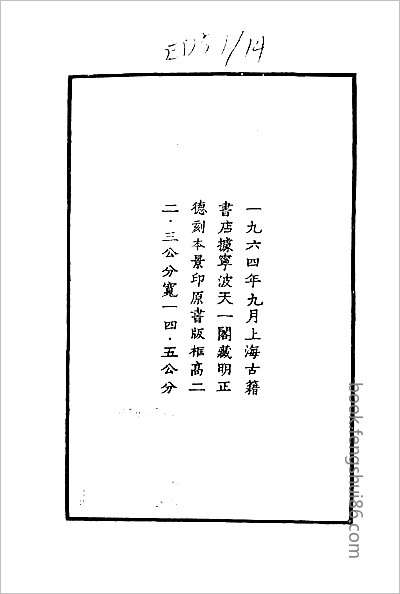 1/14
一九六四年九月上海古籍
書店據寧波天一閣藏明正
德刻本景印原書版框高二
二·三公分寬一四·五公分
book.fengshui86.com